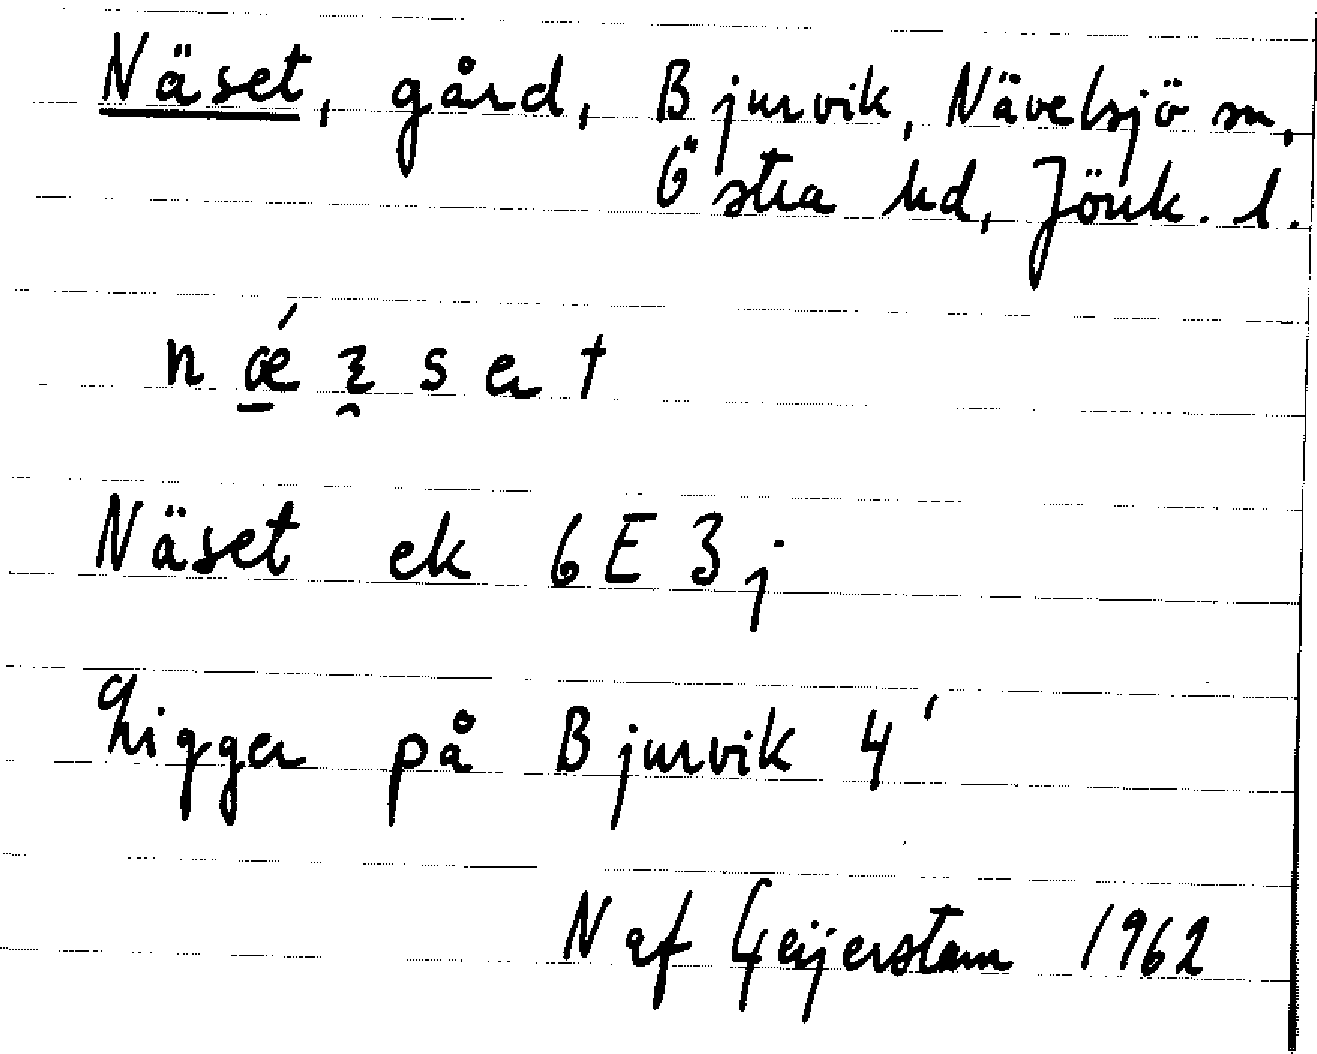 Näset, gård, Bjurvik, Nävelsjö sn,
Östra hd, Jönk. l.
Näset ek 6E3j
Ligger på Bjurvik 4'
N af Geijerstam 1962